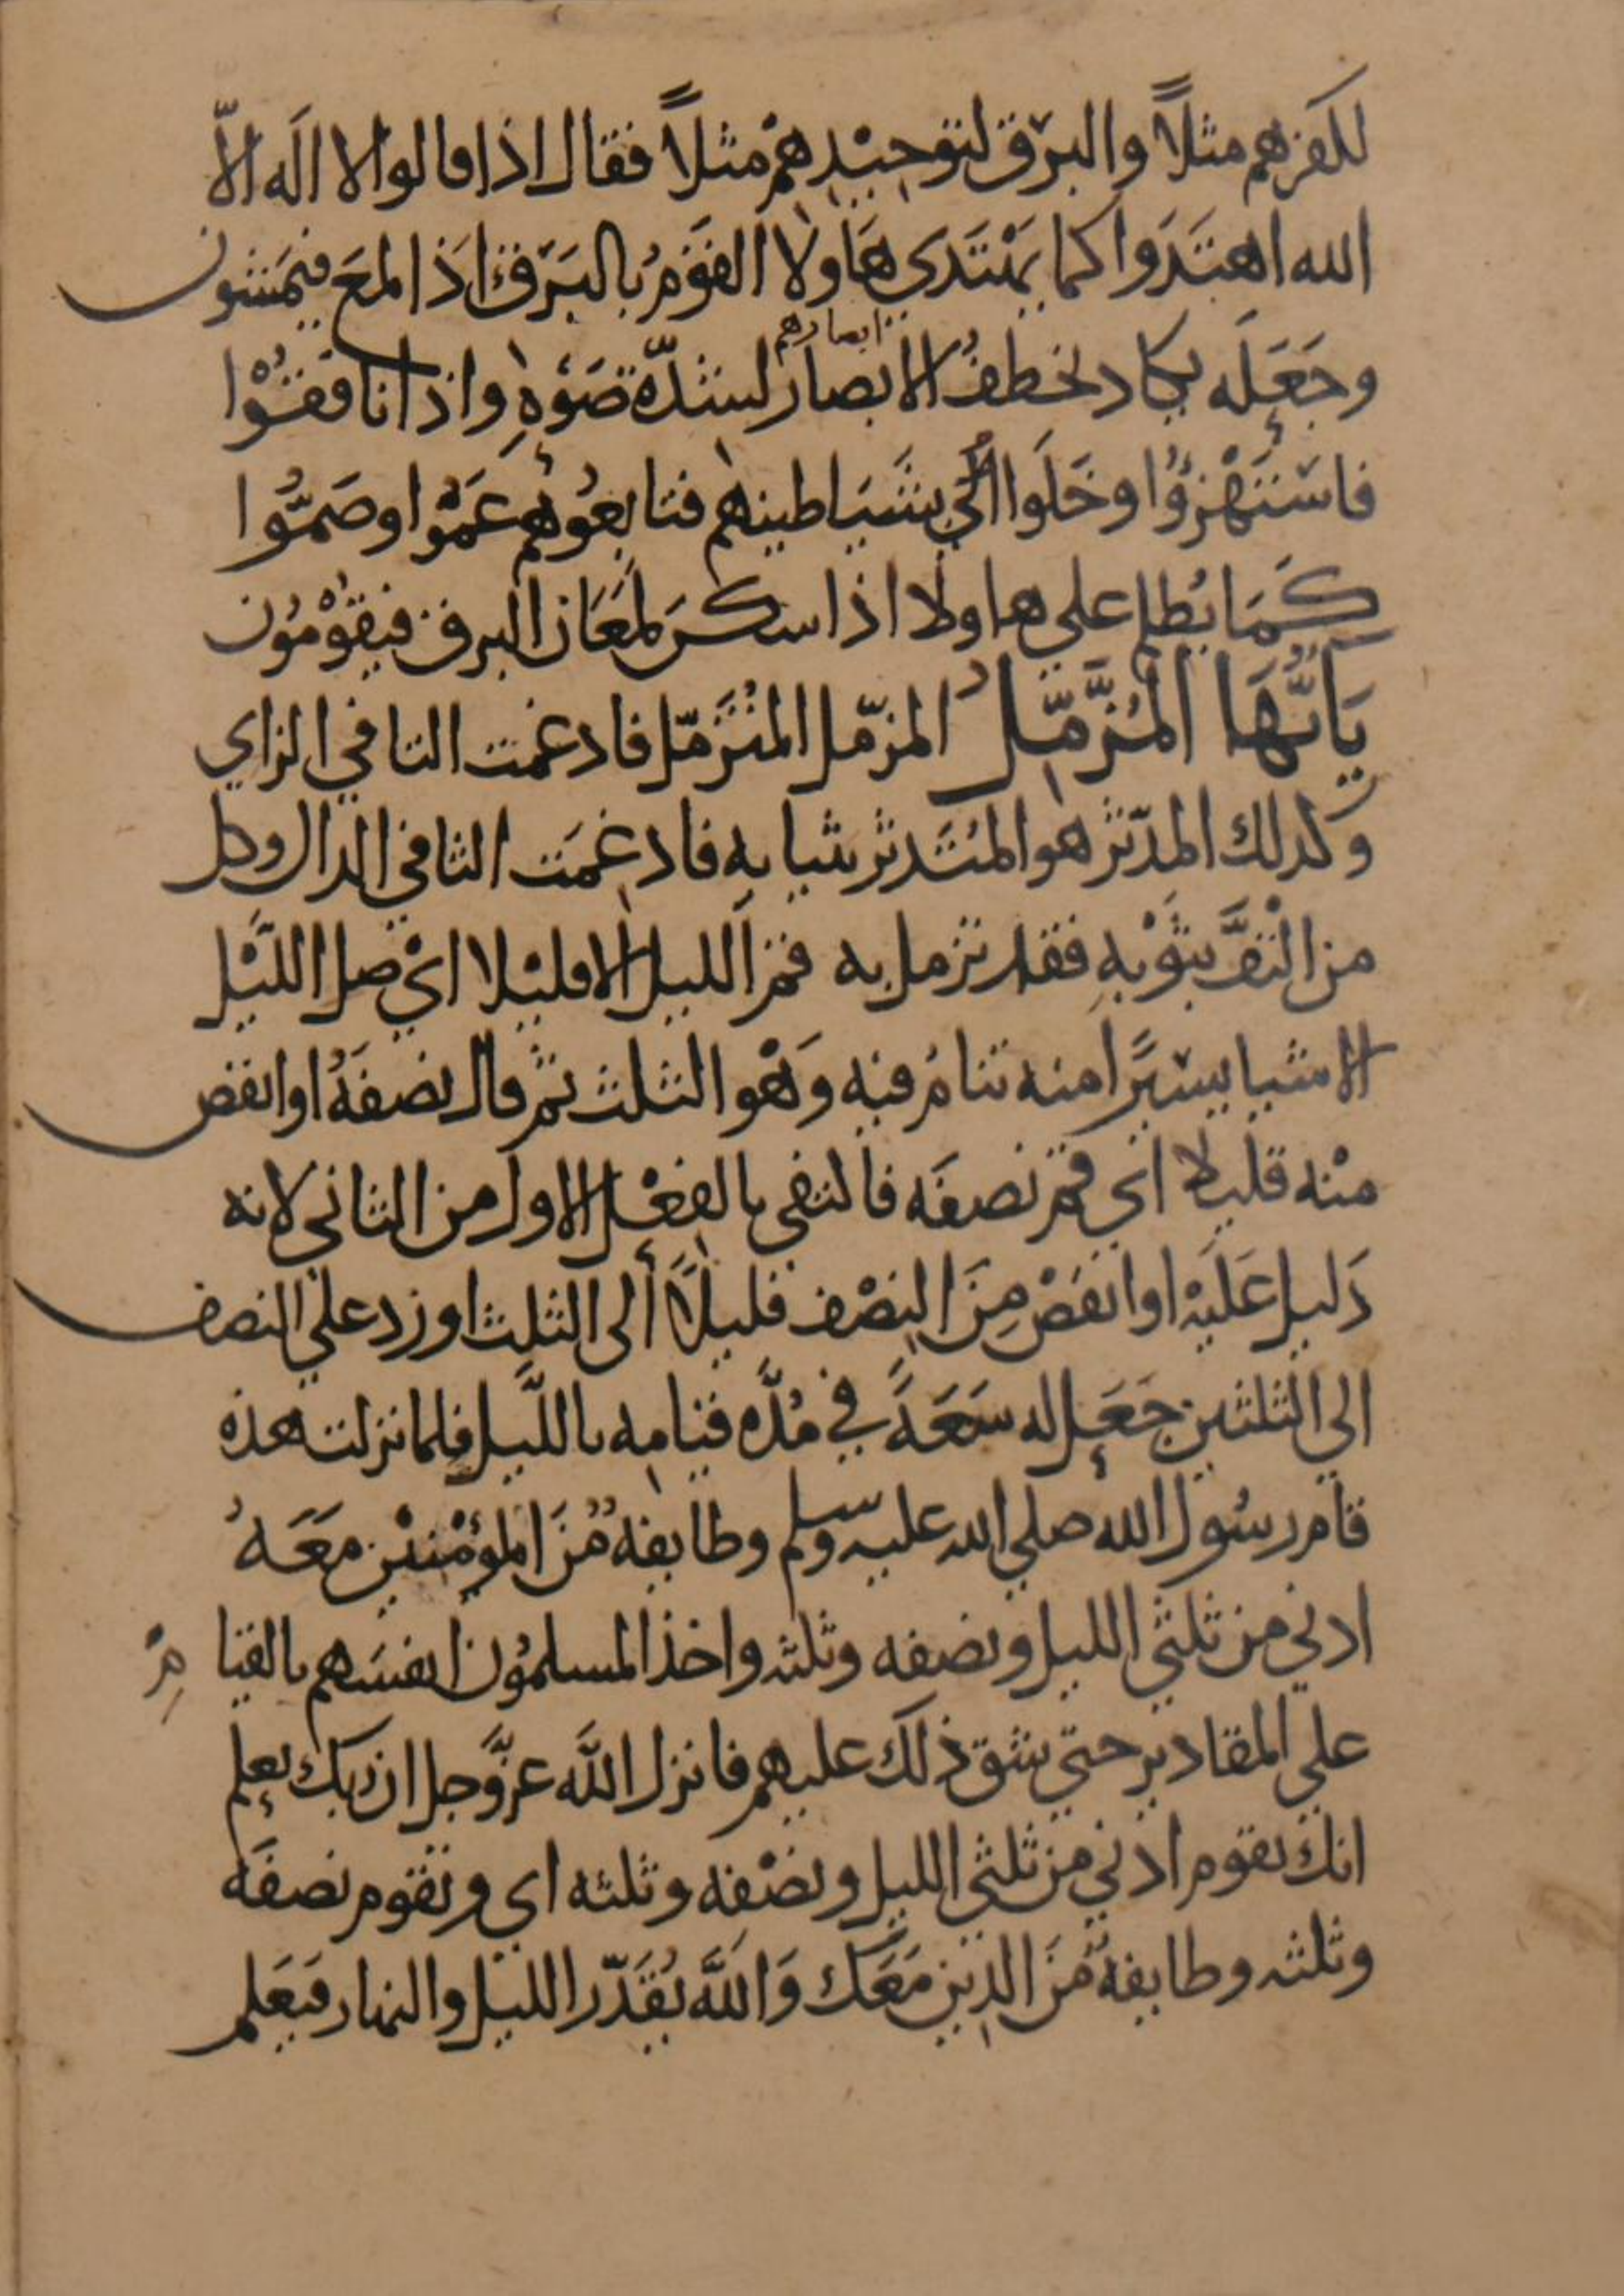 لكفرهم مثلاً والبرق لتوحيدهم مثلاً فقال اذا قالوا لا اله الا
الله اهتدوا كما يهتدي هاولا القوم بالبرق اذا لمع فيمشون
وجعله يكاد يخطف الابصار ابصارهم لشدّة ضوءه واذا نافقوا
فاستهزؤا وخلوا الي شياطينهم فتابعوهم عموا وصمّوا
كما يظلم علي هاولا اذا سكن لمعان البرق فيقومون
يَأيُّهَا المُزَّمّل المزمّل المتزمّل فادغمت التا في الزاي
وكذلك المدّثر هو المتدثر بثيابه فادغمت التا في الدال وكل
من التفّ بثوبه فقد تزمل به قم الليل الا قليلا اي صل الليل
الا شيا يسيرًا منه تنام فيه وهو الثلث ثم قال نصفه او انقص
منه قليلا اي قم نصفه فاكتفي بالفعل الاول من الثاني لانه
دليل عليه او انقص من النصف قليلاً الى الثلث او زد علي النصف
الي الثلثين جعل له سعةً في مدّه قيامه بالليل فلما نزلت هذه
قام رسول الله صلي الله عليه وسلم وطايفة من المؤمنين معه
ادني من ثلثي الليل ونصفه وثلثه واخذ المسلمون انفسهم بالقيام
علي المقادير حتي شق ذلك عليهم فانزل الله عزّ وجل ان ربك يعلم
انك تقوم ادني من ثلثي الليل ونصفه وثلثه اي وتقوم نصفه
وثلثه وطايفة من الذين معك والله يقدّر الليل والنهار فيعلم